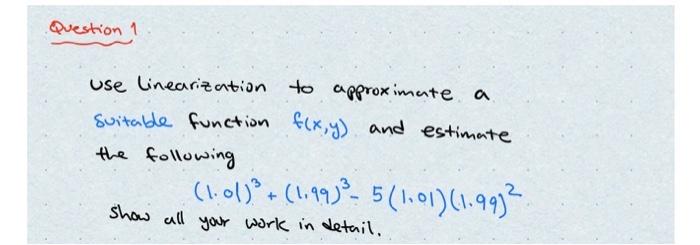 Question 1
use linearization to approximate a
suitable function f(x,y) and estimate
the following
(1.01)³ + (1.99)³ - 5(1.01)(1.99)²
Show all your work in detail.